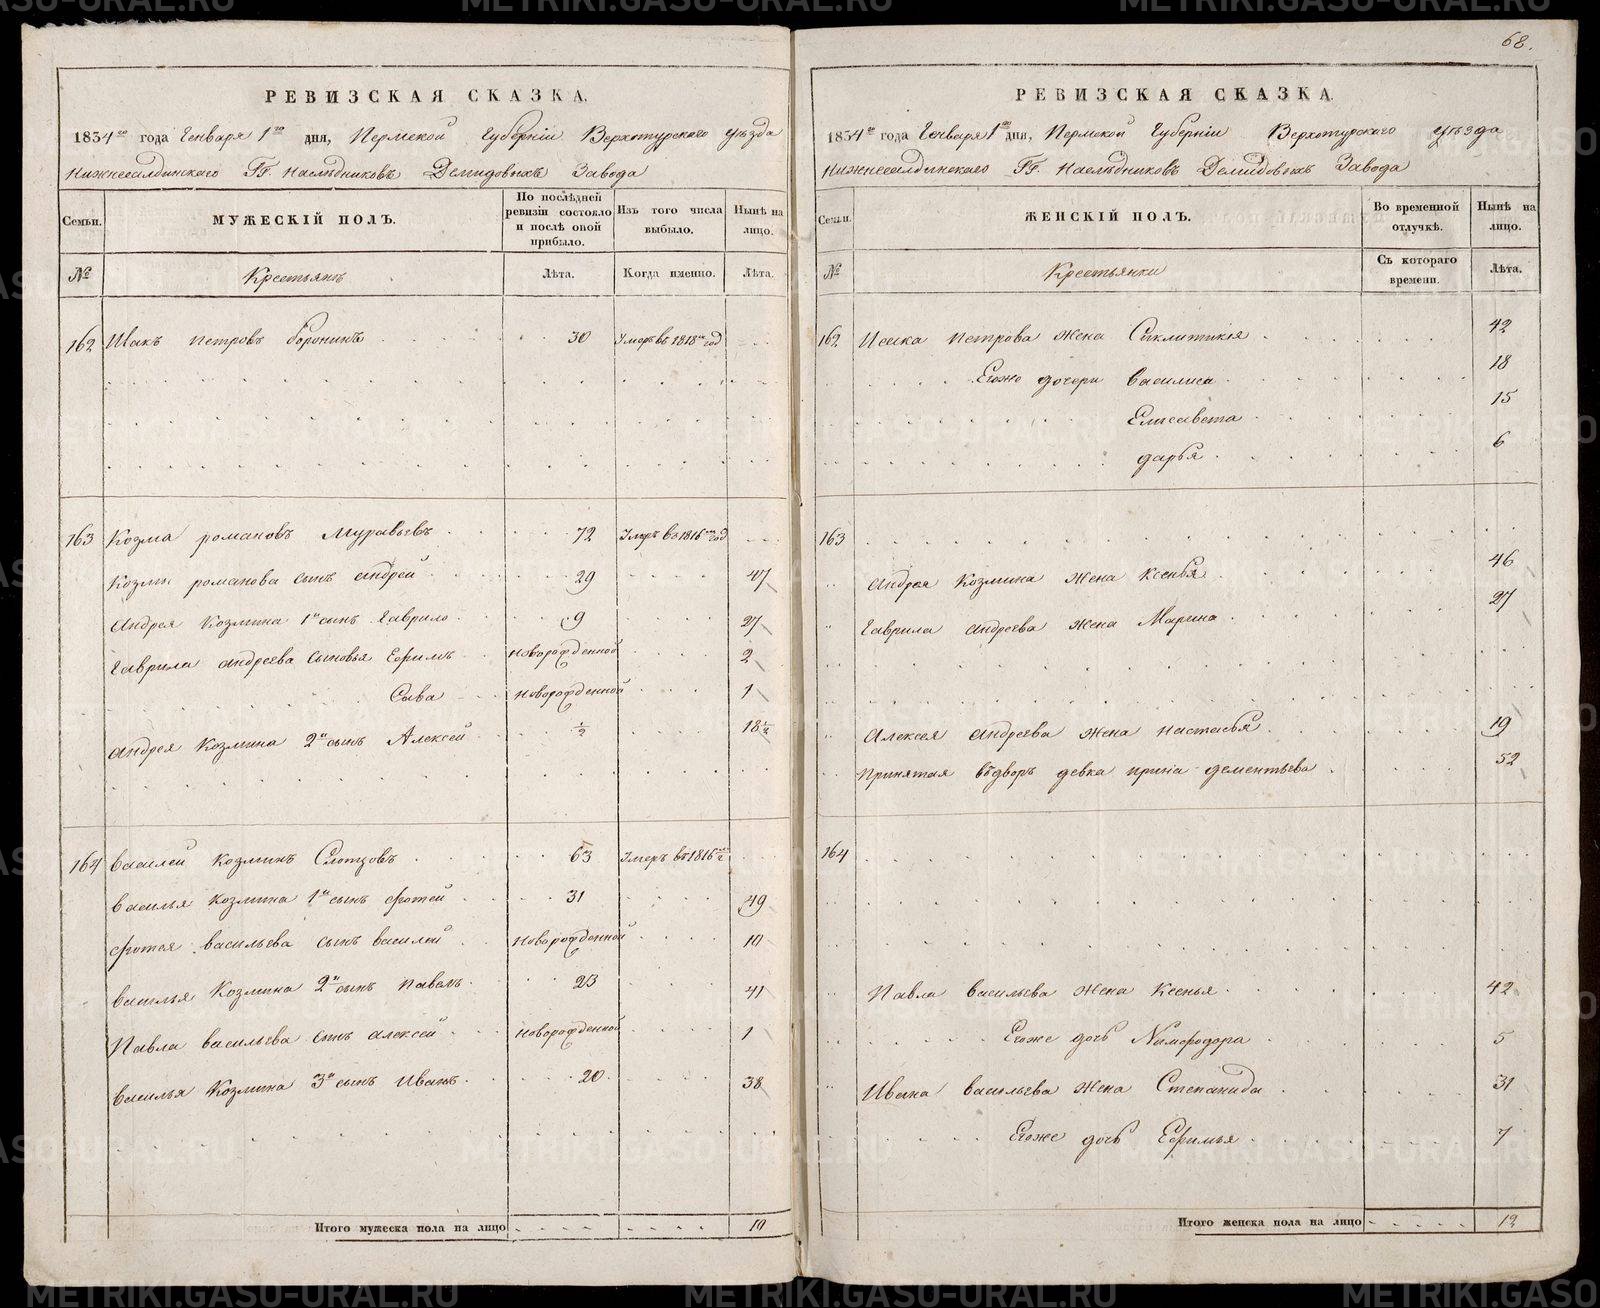 68.
РЕВИЗСКАЯ СКАЗКА.
1834го года Генваря 1го дня, Пермской Губернiи Верхотурского уѣзда
Нижнесалдинского ГГ. Наслѣдниковъ Демидовыхъ Завода
Семьи.
МУЖЕСКIЙ ПОЛЪ.
По послѣдней ревизiи состояло и послѣ оной прибыло.
Изъ того числа выбыло.
Нынѣ на лицо.
№
Крестьянъ
Лѣта.
Когда именно.
Лѣта.
162 Исакъ петровъ воронинъ 30 Умеръ въ 1818м год
163 Козма романовъ Муравьевъ 72 Умеръ въ 1816м год
Козмы романова сынъ андрей 29 47
Андрея Козмина 1й сынъ Гаврило 9 27
Гаврила андреева сыновья Ефимъ новорожденной 2
Сава новорожденной 1
андрея Козмина 2й сынъ Алексей ½ 18½
164 василей козминъ 63 Умеръ въ 1816м
василья козмина 1й сынъ фотей 31 49
фотея васильева сынъ василей новорожденной 10
василья Козмина 2й сынъ павелъ 23 41
Павла васильева сынъ алексей новорожденной 1
василья Козмина 3й сынъ Иванъ 20 38
Итого мужеска пола на лицо 10
РЕВИЗСКАЯ СКАЗКА.
1834го года Генваря 1го дня, Пермской Губернiи Верхотурского уѣзда
Нижнесалдинского ГГ. Наслѣдниковъ Демидовыхъ Завода
Семьи.
ЖЕНСКIЙ ПОЛЪ.
Во временной отлучкѣ.
Нынѣ на лицо.
№
Крестьянки
Съ котораго времени.
Лѣта.
162 Исака петрова жена Сиклитикiя 42
Егоже дочери василиса 18
Елисавета 15
дарья 6
163
андрея козмина жена ксенья 46
Гаврила андреева жена Марина 27
Алексея андреева жена настасья 19
Принятая въ дворъ девка ирина дементьева 52
164
Павла васильева жена Ксенья 42
Егоже дочь 5
Ивана васильева жена Степанида 31
Егоже дочь Ефимья 7
Итого женска пола на лицо 12
METRIKI.GASO-URAL.RU